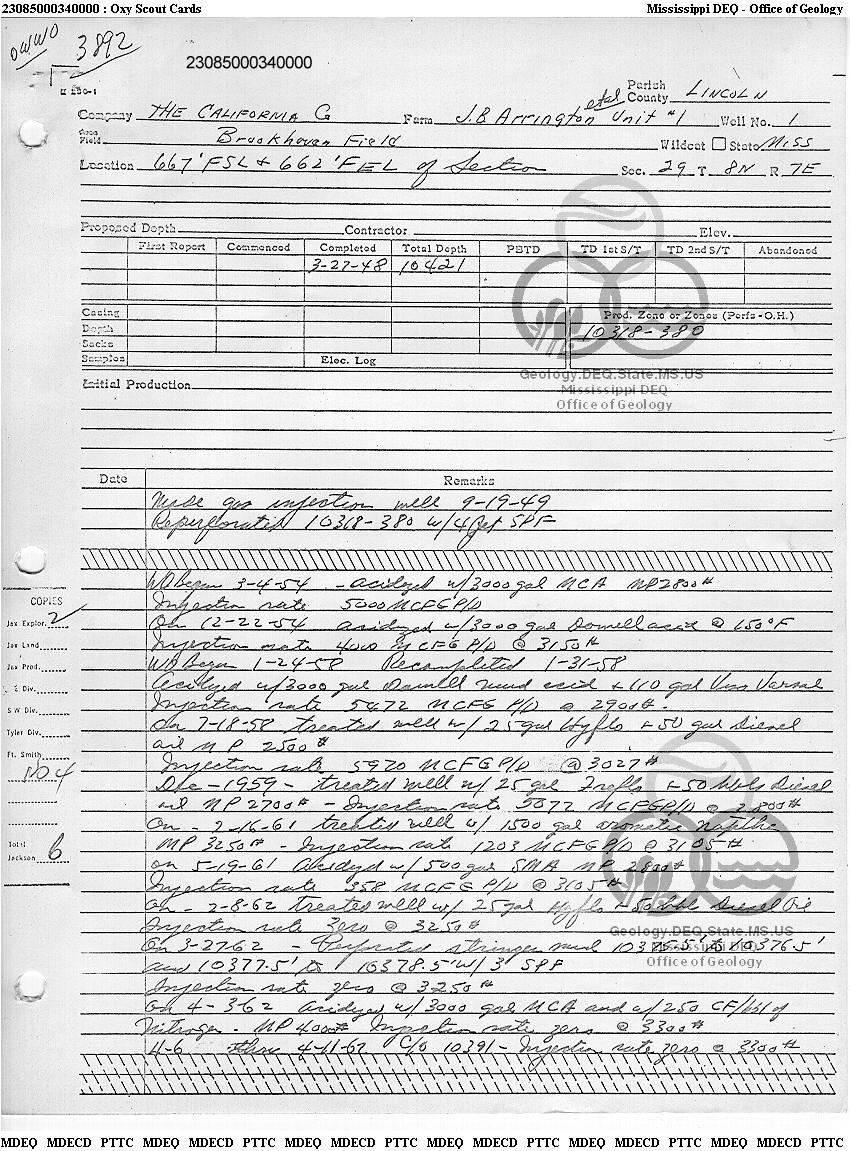 23085000340000 : Oxy Scout Cards Mississippi DEQ - Office of Geology
OWWO
3892
23085000340000
Parish
County LINCOLN
Company THE CALIFORNIA Co Farm J.B Arrington etal Unit #1 Well No. 1
Field Brookhaven Field Wildcat State Miss
Location 667' FSL & 662' FEL of Section Sec. 29 T 8N R 7E
Proposed Depth Contractor Elev.
First Report Commenced Completed Total Depth PBTD TD 1st S/T TD 2nd S/T Abandoned
3-27-48 10421
Casing Prod. Zone or Zones (Perfs-O.H.)
Depth 10318-380
Sacks
Samples Elec. Log
Geology.DEQ.State.MS.US
Mississippi DEQ
Office of Geology
Initial Production
Date Remarks
Made gas injection well 9-19-49
Reperforated 10318-380 w/4 jet SPF
WO began 3-4-54 - acidized w/3000 gal MCA MP 2800#
Injection rate 5000 MCFGP/D
On 12-22-54 acidized w/3000 gal Dowell acid @ 150°F
Injection rate 4000 MCFG P/D @ 3150#
WO Began 1-24-58 Recompleted 1-31-58
Acidized w/3000 gal Dowell mud acid + 110 gal
Injection rate 5472 MCFG P/D @ 2900#.
On 7-18-58 treated well w/ 25 gal Hyflo + 50 gal Diesel
oil MP 2500#
Injection rate 5970 MCFG P/D @ 3027#
Dec - 1959 - treated well w/ 25 gal + 50 bbls Diesel
oil MP 2700# - Injection rate 5072 MCFGP/D @ 2800#
On - 2-16-61 treated well w/ 1500 gal aromatic naptha
MP 3250# - Injection rate 1203 MCFG P/D @ 3105#
on 5-19-61 Acidized w/ 500 gal SMA MP 2800#
Injection rate 358 MCFG P/D @ 3105#
On - 2-8-62 treated well w/ 25 gal Hyflo + 50 bbl Diesel Oil
Injection rate zero @ 3250#
On 3-27-62 - Perforated stringer 10376.5'
and 10377.5' to 10378.5' w/ 3 SPF
Injection rate zero @ 3250#
On 4-3-62 acidized w/ 3000 gal MCA and w/ 250 CF/bbl of
Nitrogen - MP 4000# Injection rate zero @ 3300#
4-6 thru 4-11-62 C/O 10391 - Injection rate zero @ 3300#
COPIES
Jax Explor. 2
Jax Land
Jax Prod.
Div.
S W Div.
Tyler Div.
Ft. Smith
NO 4
Total
Jackson 6
Geology.DEQ.State.MS.US
Mississippi DEQ
Office of Geology
MDEQ MDECD PTTC MDEQ MDECD PTTC MDEQ MDECD PTTC MDEQ MDECD PTTC MDEQ MDECD PTTC MDEQ MDECD PTTC